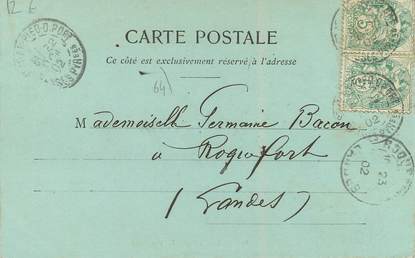 12 €
CARTE POSTALE
Ce côté est exclusivement réservé à l'adresse
64)
Mademoiselle Germaine Bacon
à Roquefort
(Landes)
PIED-D-PORT
02
23
02